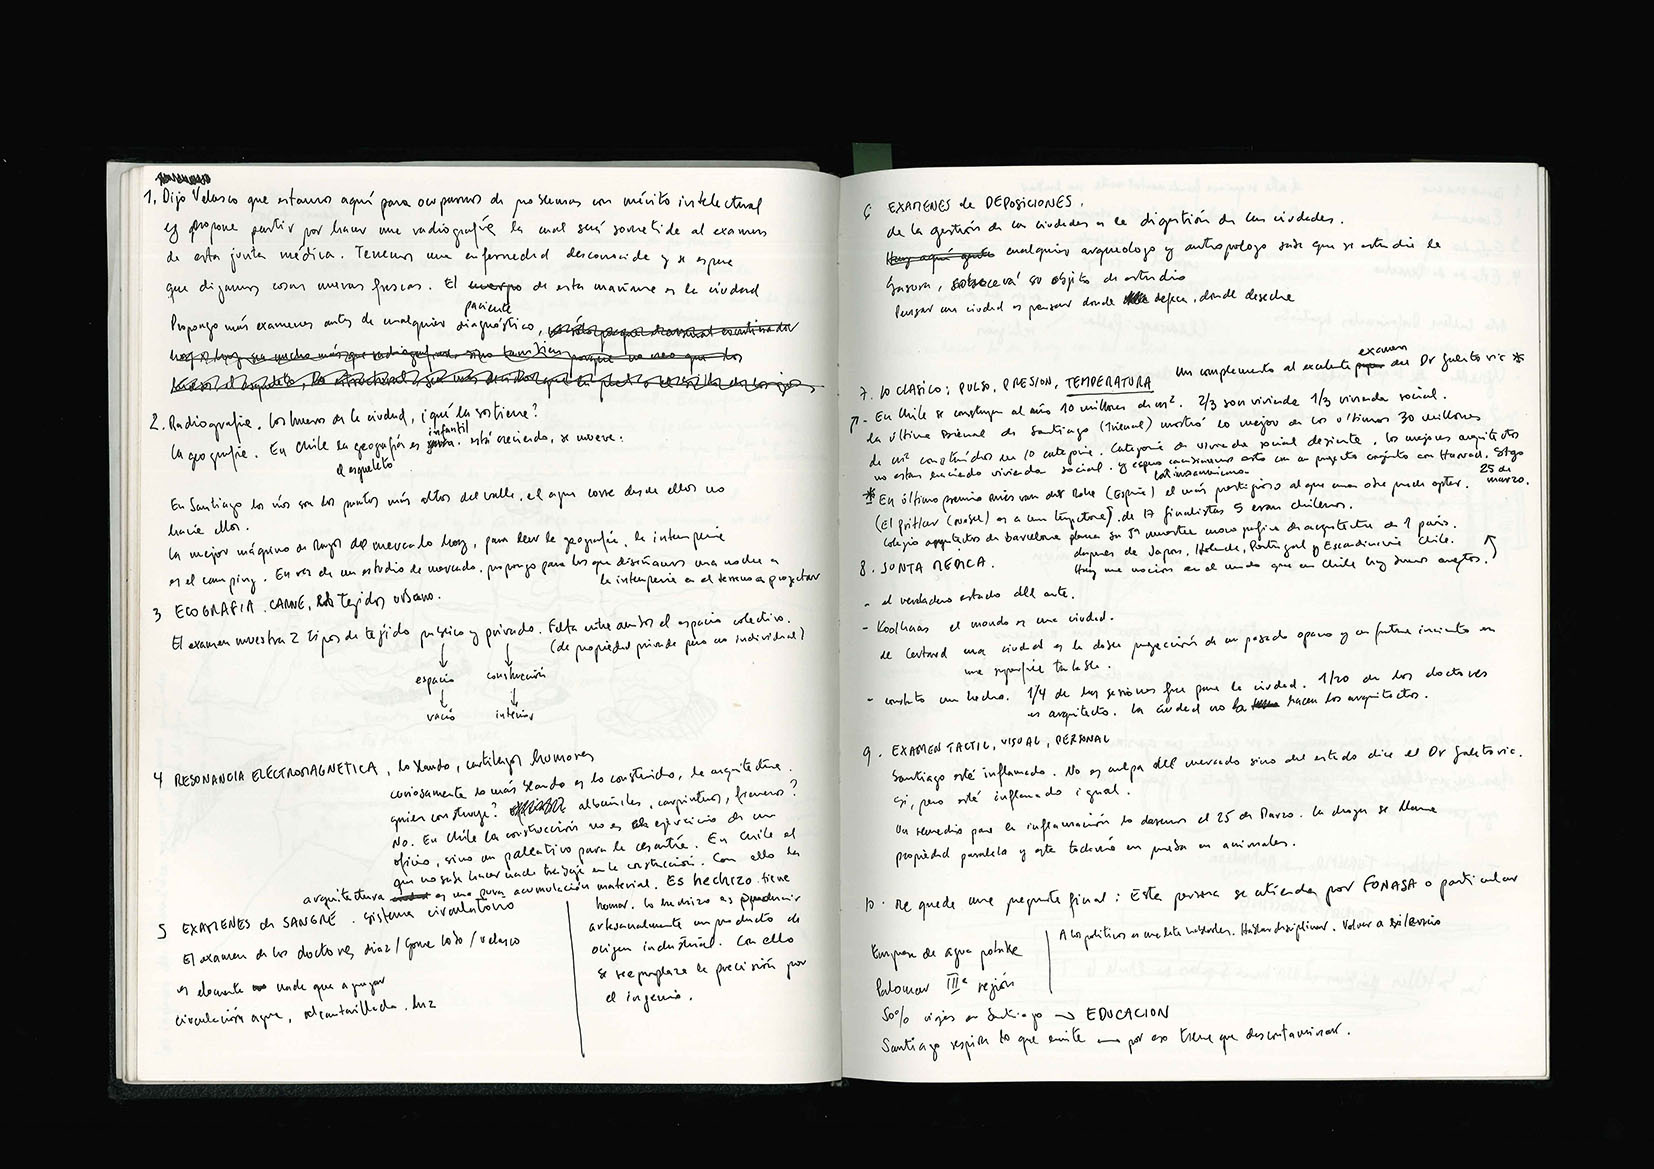 1. Dijo Velasco que estamos aquí para ocuparnos de problemas con mérito intelectual
y propone partir por hacer una radiografía la cual será sometida al examen
de esta junta médica. Tenemos una enfermedad desconocida y se espera
que digamos cosas nuevas frescas. El cuerpo de esta mañana es la ciudad
paciente
Propongo más examenes antes de cualquier diagnóstico,
2. Radiografía. Los huesos de la ciudad, ¿qué la sostiene?
infantil
La geografía. En Chile la geografía es está creciendo, se mueve.
el esqueleto
En Santiago los ríos son los puntos más altos del valle. el agua corre desde ellos no
hacia ellos.
La mejor máquina de Rayos del mercado hoy, para leer la geografía, la intemperie
es el camping. En vez de un estudio de mercado, propongo para los que diseñamos una noche a
la intemperie en el terreno a proyectar
3 ECOGRAFIA. CARNE, tejidos urbano.
El examen muestra 2 tipos de tejido público y privado. Falta entre ambos el espacio colectivo.
(de propiedad privada pero no individual)
espacio construcción
vacío interior
4 RESONANCIA ELECTROMAGNETICA, lo blando, cartílagos humores
curiosamente lo más blando es lo construido, la arquitectura.
quien construye? albañiles, carpinteros, fierreros?
No. En Chile la construcción no es el ejercicio de un
oficio, sino un paleativo para la cesantía. En Chile el
que no sabe hacer nada trabaja en la construcción. Con ello la
arquitectura es una pura acumulación material. Es hechizo. tiene
humor. Lo hechizo es producir
artesanalmente un producto de
origen industrial. Con ello
se reemplaza la precisión por
el ingenio.
5 EXAMENES de SANGRE. sistema circulatorio
El examen de los doctores Diaz / Gome Lobo / Velasco
es elocuente nada que agregar
circulación agua, alcantarillado. luz
6 EXAMENES de DEPOSICIONES.
de la gestión de las ciudades a la digestión de las ciudades.
Hay aquí gente cualquier arqueologo y antropologo sabe que se estudia la
basura, su objeto de estudio
Pensar una ciudad es pensar donde defeca, donde desecha
examen
Un complemento al excelente del Dr Galetovic *
7. LO CLASICO; PULSO, PRESION, TEMPERATURA
- En Chile se construyen al año 10 millones de m². 2/3 son vivienda 1/3 vivienda social.
La última Bienal de Santiago (trienal) mostró lo mejor de los últimos 30 millones
de m² construidos en 10 categoria. Categoria de vivienda social desierta. los mejores arquitectos
no estan haciendo vivienda social. y esto con un proyecto conjunto con Harvard. Stgo
25 de
marzo.
latinoamericano
* En último premio mies van der Rohe (España) el más prestigioso al que una obra puede optar.
(El pritzker (nobel) es a una trayectoria) de 17 finalistas 5 eran chilenos.
Colegio arquitectos de Barcelona planea su 5ª muestra monografica de arquitectura de 1 país.
despues de Japon, Holanda, Portugal y Escandinavia Chile.
Hay una nocion en el mundo que en Chile hay buenos arqtos.)
8. JUNTA MEDICA.
- el verdadero estado del arte.
- Koolhaas el mundo es una ciudad.
de Certeau una ciudad es la doble proyección de un pasado opaco y un futuro incierto en
una superficie tratable.
- constato un hecho. 1/4 de las sesiones fue para la ciudad. 1/20 de los doctores
es arquitecto. La ciudad no la hacen los arquitectos.
9. EXAMEN TACTIL, VISUAL, PERSONAL
Santiago está inflamado. No es culpa del mercado sino del estado dice el Dr Galetovic.
si, pero está inflamado igual.
Un remedio para la inflamación lo daremos el 25 de Marzo. La droga se llama
propiedad paralela y esta todavía en prueba en animales.
10. Me queda una pregunta final: Este persona se atiende por FONASA o particular
Empresa de agua potable
Palomar IIIª región
A los políticos Hablar disciplinar. Volver a
50% viajes en Santiago → EDUCACION
Santiago respira lo que emite por eso tiene que descontaminar.